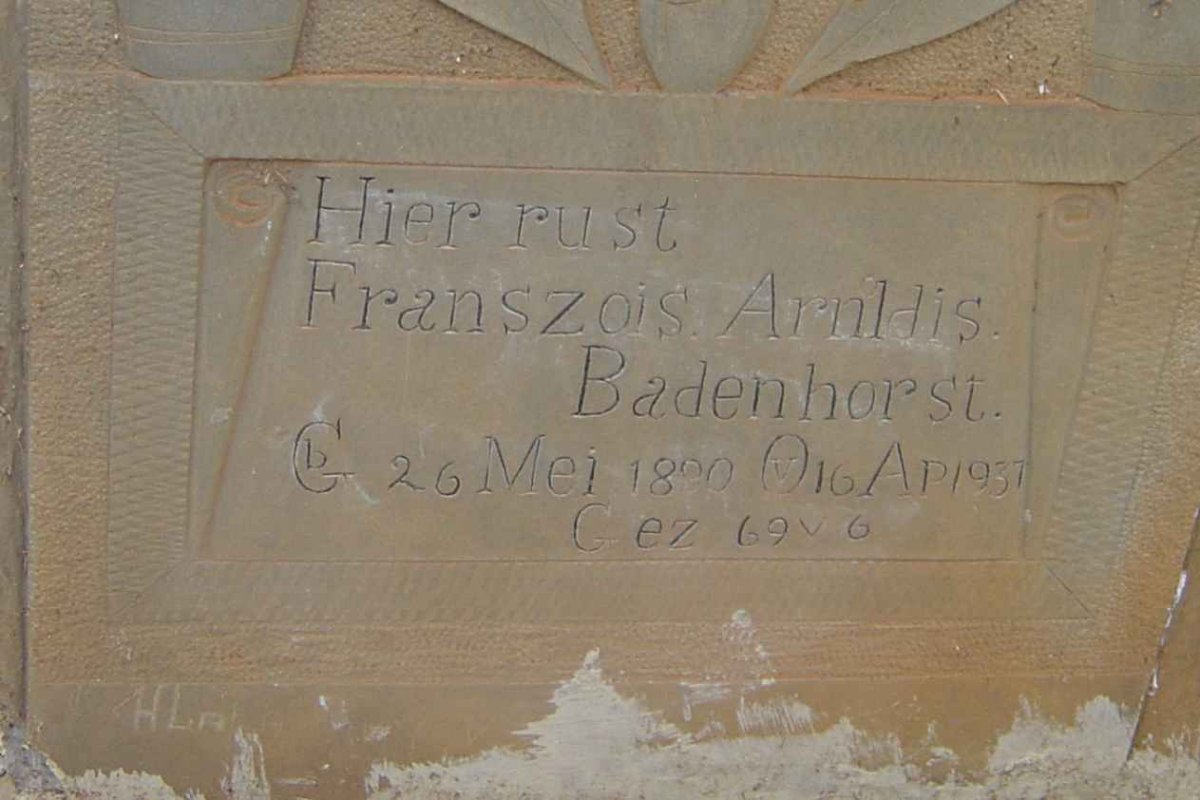 Hier rust
Franszois. Arnldis.
Badenhorst.
Gb 26 Mei 1890 Ov 16 Apl 1931
Gez 69 v 6